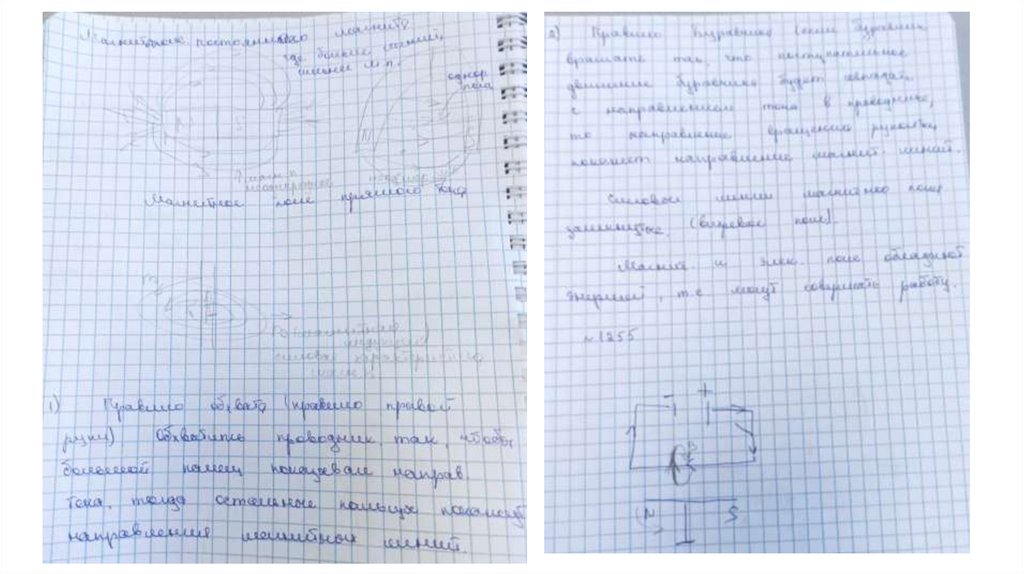 Магнитное постоянного магнита
где ближе линии,
сильнее м.п.
однор
поле
N
Магнитное поле прямого тока
B (магнитная
индукция)
силовая характеристика
1) Правило обхвата (правило правой
руки) Обхватить проводник так, чтобы
большой палец показывал направ.
тока, тогда остальные пальцы покажут
направления магнитных линий.
2) Правило буравчика (если буравчик
вращать так, что поступательное
движение буравчика будет совпадать
с направлением тока в проводнике,
то направление вращения рукоятки
покажет направление магнит. линий.
Силовые линии магнитного поля
замкнутые. (вихревое поле).
Магнит. и элек. поле обладают
энергией, т.е. могут совершать работу.
№1255
- +
B
N S